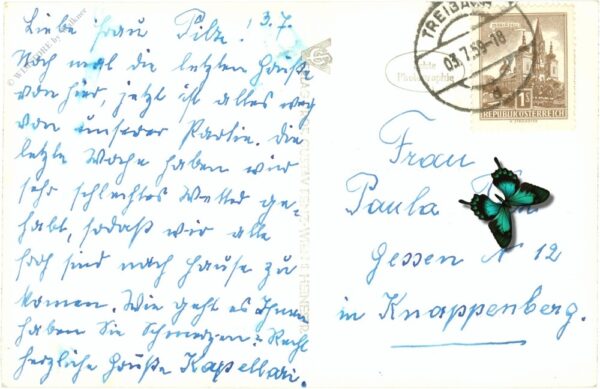 Liebe Frau Pilz! 3.7.
Noch mal die letzten Grüße
von hier, jetzt ist alles weg
von unserer Partie. Die
letzte Woche haben wir
sehr schlechtes Wetter ge-
habt, sodaß wir alle
froh sind nach Hause zu
komen. Wie geht es Ihnen
haben Sie Schmerzen? Recht
herzliche Grüße Kapellari.
TREIBACH
03.7.59-18
d
1S
REPUBLIK ÖSTERREICH
Echte
Photographie
Frau
Paula
Gessen N 12
in Knappenberg.